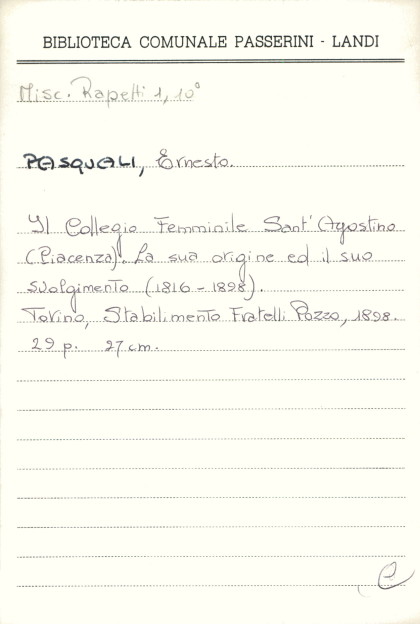 BIBLIOTECA COMUNALE PASSERINI - LANDI
Misc. Rapetti 1, 10°
PASQUALI, Ernesto.
Il Collegio Femminile Sant'Agostino
(Piacenza). La sua origine ed il suo
svolgimento (1816 - 1898).
Torino, Stabilimento Fratelli Pozzo, 1898.
29 p. 27 cm.
C